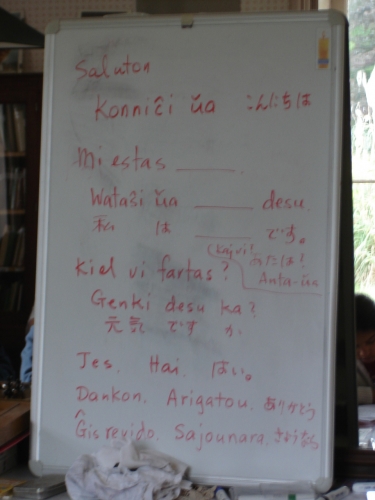 Saluton
Konniĉi ŭa こんにちは
Mi estas ______.
Wataŝi ŭa ______ desu.
私 は ______ です。
(Kaj vi! あたは!
Kiel vi fartas? Anta-ŭa
Genki desu ka?
元気 です か
Jes. Hai. はい。
Dankon. Arigatou. ありがとう
Ĝis revido. Sajounara. さようなら